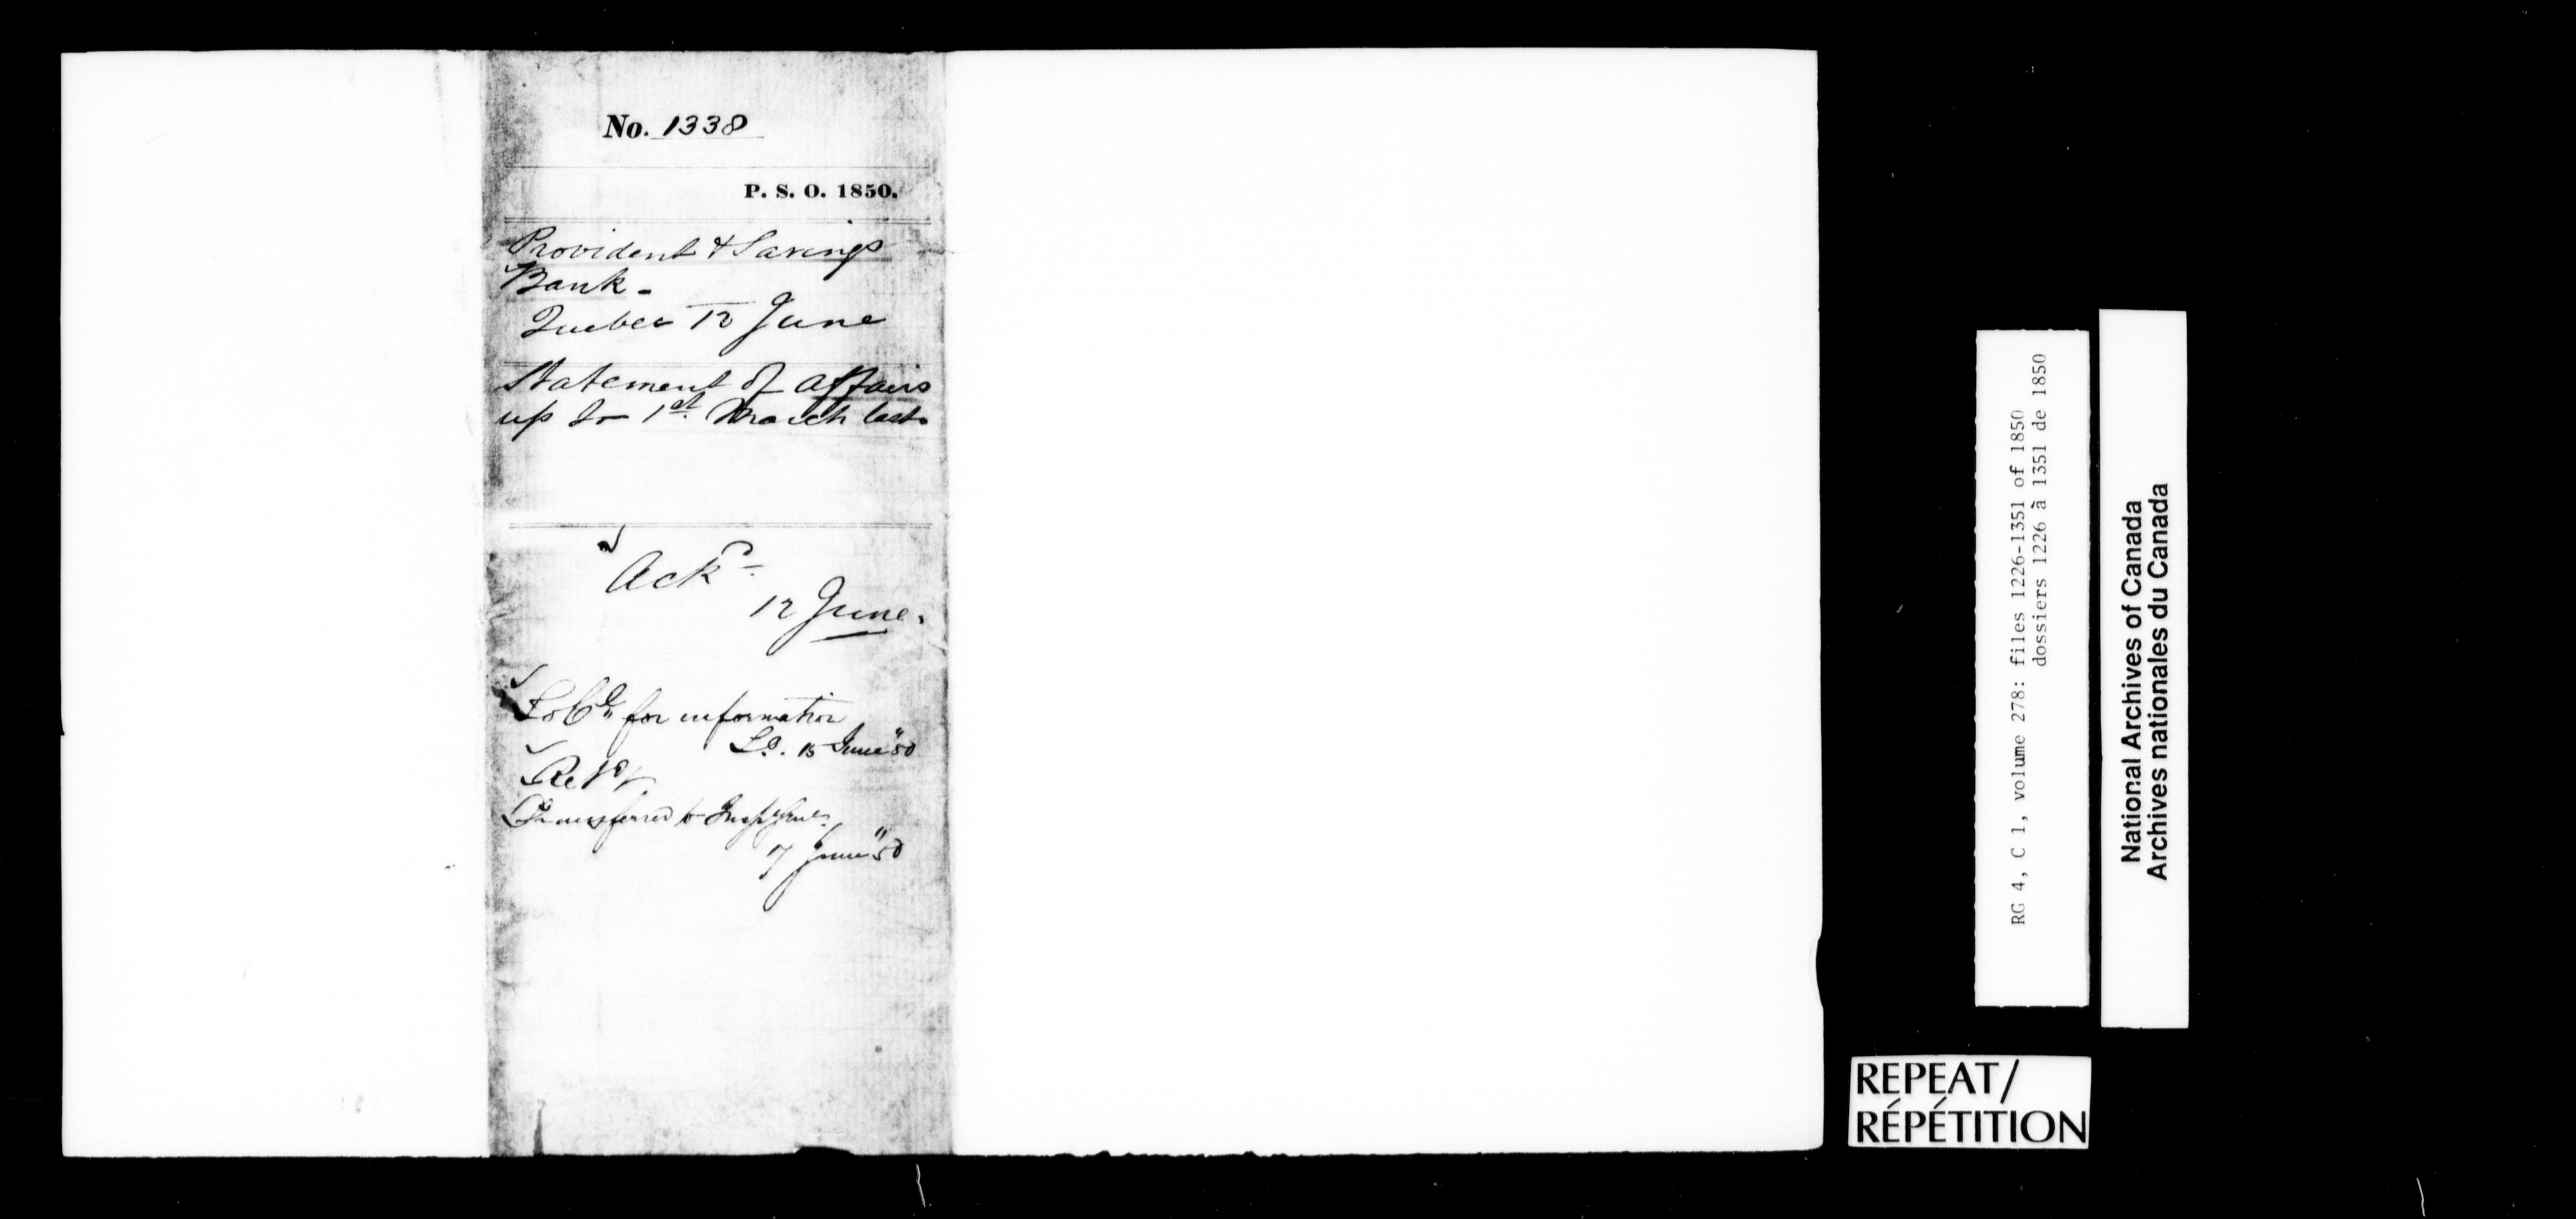 No. 1338
P. S. O. 1850.
Provident & Savings
Bank -
Quebec 12 June
Statement of affairs
up to 1st March last.
Ackd
12 June.
for information
15 June "50
Retd
Transferred to Insp Genl.
17 June "50
RG 4, C 1, volume 278: files 1226-1351 of 1850
dossiers 1226 à 1351 de 1850
National Archives of Canada
Archives nationales du Canada
REPEAT/
RÉPÉTITION